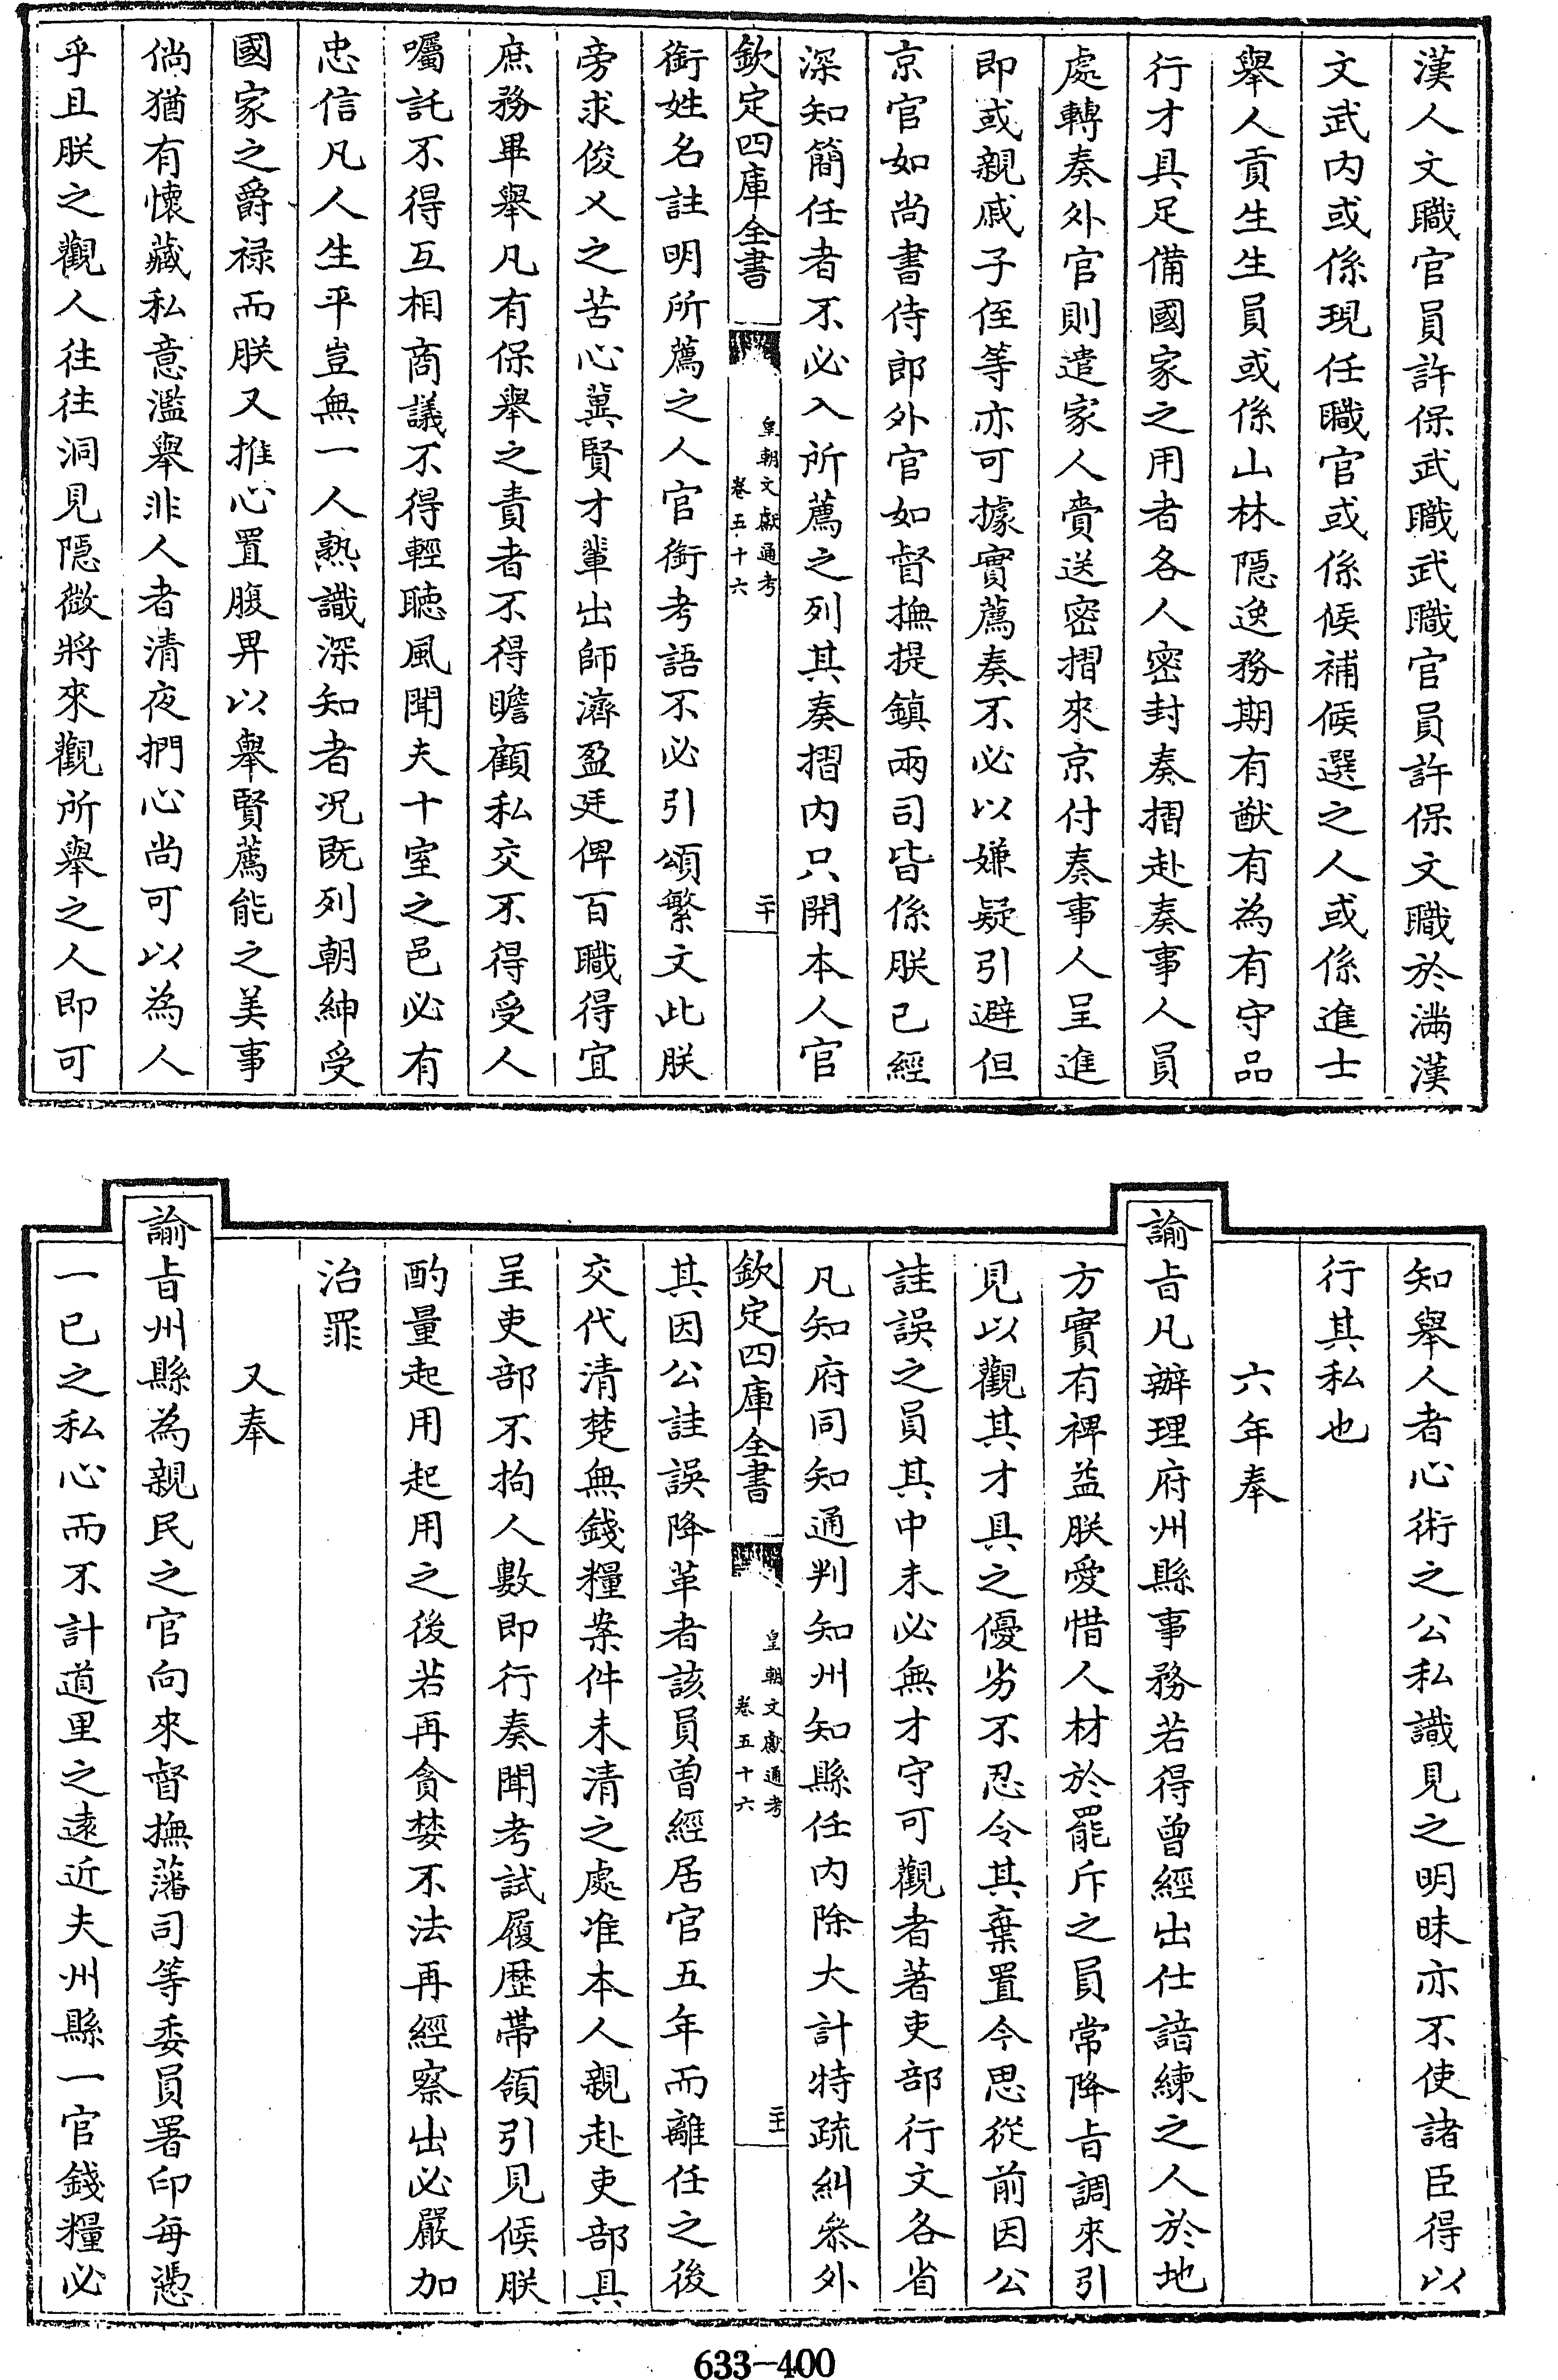 漢人文職官員許保武職武職官員許保文職於滿漢
文武内或係現任職官或係候補候選之人或係進士
舉人貢生生員或係山林隱逸務期有猷有為有守品
行才具足備國家之用者各人密封奏摺赴奏事人員
處轉奏外官則遣家人賫送密摺來京付奏事人呈進
即或親戚子侄等亦可據實薦奏不必以嫌疑引避但
京官如尚書侍郎外官如督撫提鎮兩司皆係朕已經
深知簡任者不必入所薦之列其奏摺内只開本人官
欽定四庫全書
皇朝文獻通考
卷五十六
二十
銜姓名註明所薦之人官銜考語不必引頌繁文此朕
旁求俊乂之苦心冀賢才輩出師濟盈廷俾百職得宜
庶務畢舉凡有保舉之責者不得瞻顧私交不得受人
囑託不得互相商議不得輕聽風聞夫十室之邑必有
忠信凡人生平豈無一人熟識深知者况既列朝紳受
國家之爵禄而朕又推心置腹畀以舉賢薦能之美事
倘猶有懷藏私意濫舉非人者清夜捫心尚可以為人
乎且朕之觀人往往洞見隱微將來觀所舉之人即可
知舉人者心術之公私識見之明昧亦不使諸臣得以
行其私也
六年奉
諭旨凡辦理府州縣事務若得曾經出仕諳練之人於地
方實有裨益朕愛惜人材於罷斥之員常降旨調來引
見以觀其才具之優劣不忍令其棄置今思從前因公
詿誤之員其中未必無才守可觀者著吏部行文各省
凡知府同知通判知州知縣任内除大計特疏糾叅外
欽定四庫全書
皇朝文獻通考
卷五十六
二十一
其因公詿誤降革者該員曾經居官五年而離任之後
交代清楚無錢糧案件未清之處准本人親赴吏部具
呈吏部不拘人數即行奏聞考試履歷帶領引見候朕
酌量起用起用之後若再貪婪不法再經察出必嚴加
治罪
又奉
諭旨州縣為親民之官向來督撫藩司等委員署印每憑
一已之私心而不計道里之遠近夫州縣一官錢糧必
633-400